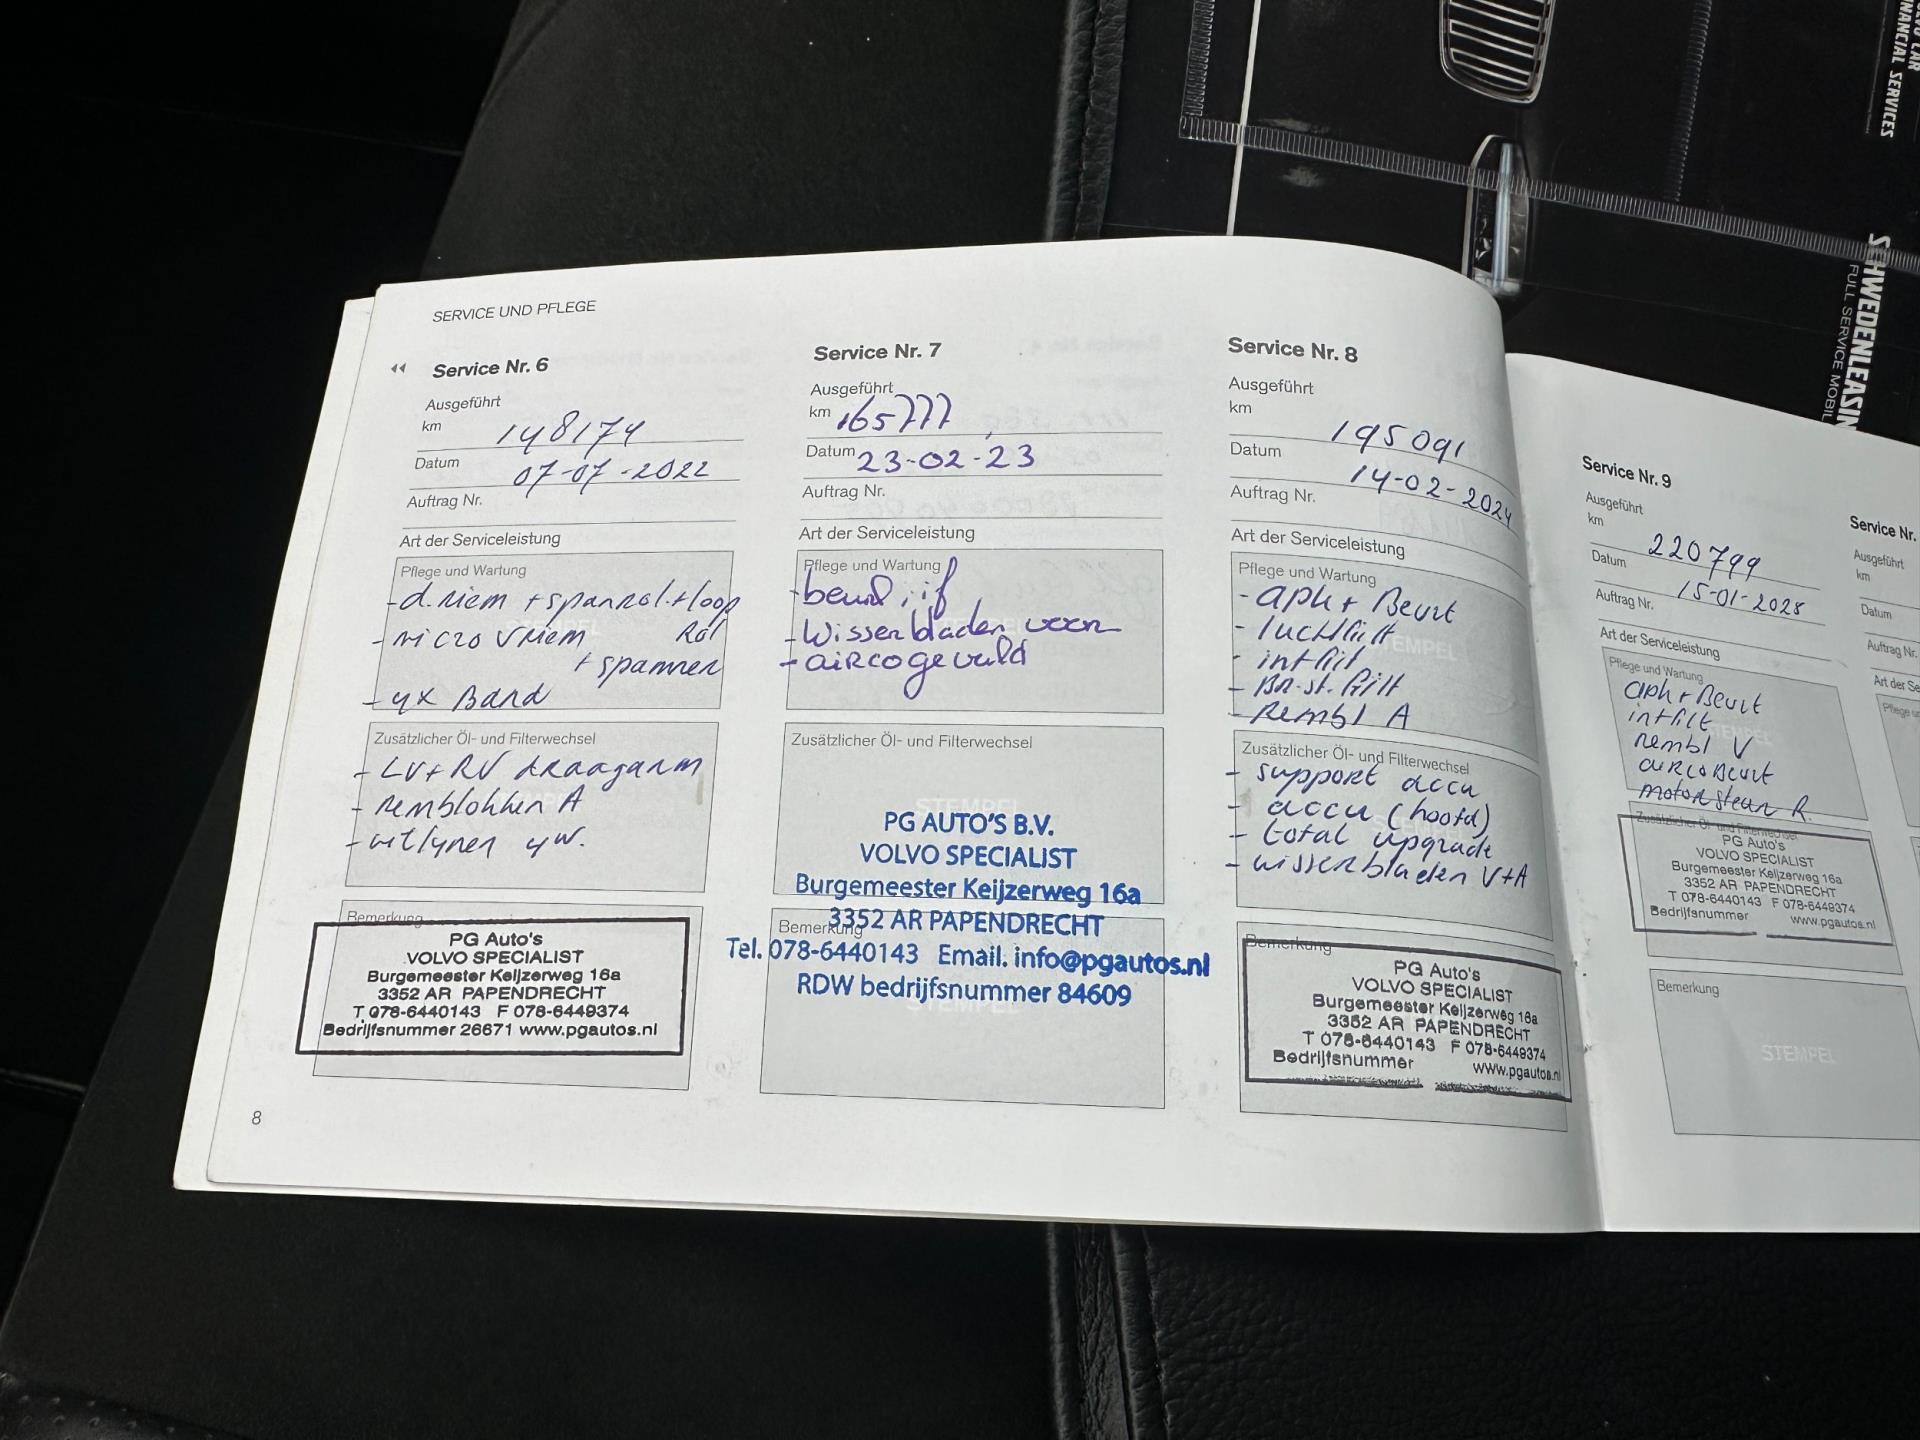 FINANCIAL SERVICES
SCHWEDENLEASIN
FULL SERVICE MOBIL
SERVICE UND PFLEGE
Service Nr. 6
Ausgeführt
km 148174
Datum 07-07-2022
Auftrag Nr.
Art der Serviceleistung
Pflege und Wartung
- d.riem + spanrol + loop
rol
- micro Vriem
+ spanner
- 4x Band
Zusätzlicher Öl- und Filterwechsel
- LV+RV draagarm
- remblokken A
- uitlynen 4W.
Bemerkung
PG Auto's
VOLVO SPECIALIST
Burgemeester Keijzerweg 16a
3352 AR PAPENDRECHT
T 078-6440143 F 078-6449374
Bedrijfsnummer 26671 www.pgautos.nl
8
Service Nr. 7
Ausgeführt
km 165777
Datum 23-02-23
Auftrag Nr.
Art der Serviceleistung
Pflege und Wartung
- Wisserbladen voor
- airco gevuld
Zusätzlicher Öl- und Filterwechsel
STEMPEL
PG AUTO'S B.V.
VOLVO SPECIALIST
Burgemeester Keijzerweg 16a
3352 AR PAPENDRECHT
Bemerkung
Tel. 078-6440143 Email. info@pgautos.nl
RDW bedrijfsnummer 84609
STEMPEL
Service Nr. 8
Ausgeführt
km 195091
Datum 14-02-2024
Auftrag Nr.
Art der Serviceleistung
Pflege und Wartung
- apk + Beurt
- luchtfilt
- int filt
- Br.st. filt
- Rembl A
Zusätzlicher Öl- und Filterwechsel
- support accu
- accu (hoofd)
- total upgrade
- wisserbladen V+A
Bemerkung
PG Auto's
VOLVO SPECIALIST
Burgemeester Keijzerweg 16a
3352 AR PAPENDRECHT
T 078-6440143 F 078-6449374
Bedrijfsnummer www.pgautos.nl
Service Nr. 9
Ausgeführt
km 220799
Datum 15-01-2025
Auftrag Nr.
Art der Serviceleistung
Pflege und Wartung
apk + Beurt
int filt
rembl V
airco Beurt
motorsteun R.
Zusätzlicher Öl- und Filterwechsel
PG Auto's
VOLVO SPECIALIST
Burgemeester Keijzerweg 16a
3352 AR PAPENDRECHT
T 078-6440143 F 078-6449374
Bedrijfsnummer www.pgautos.nl
Bemerkung
STEMPEL
Service Nr.
Ausgeführt
km
Datum
Auftrag Nr.
Art der Se